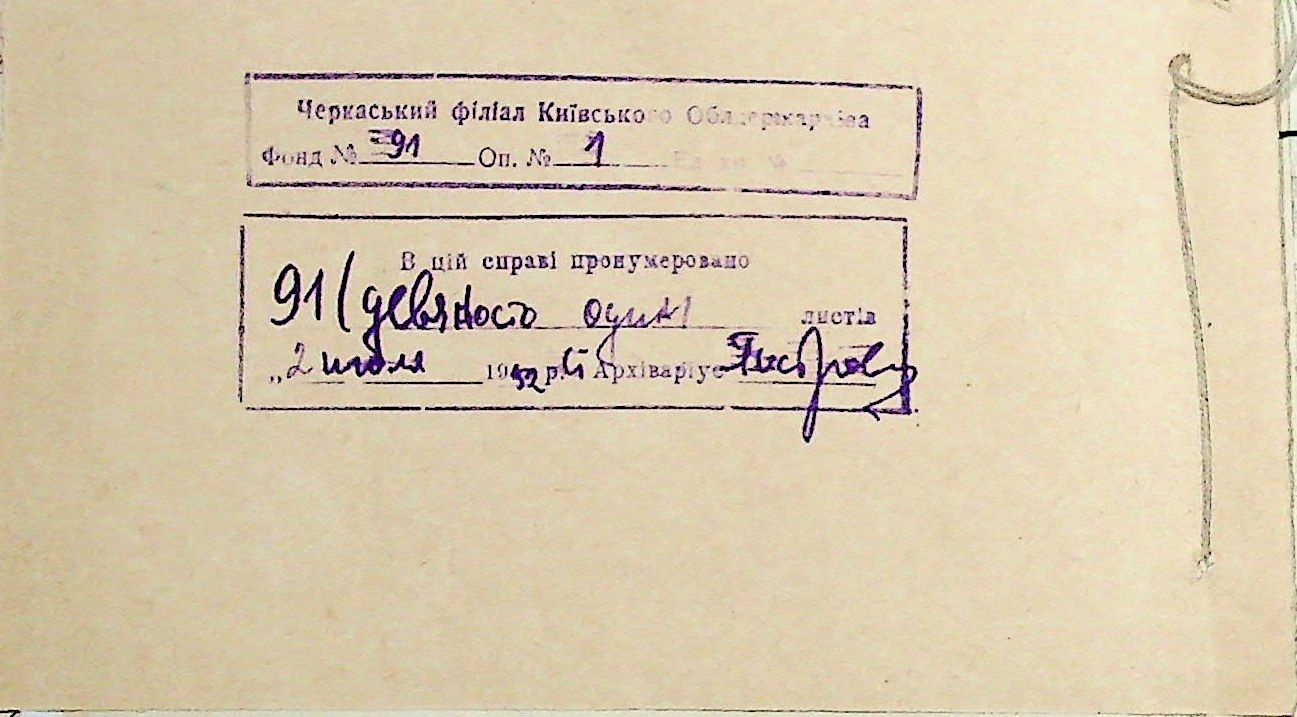 Черкаський філіал Київського Облдержархіва
Фонд № 91 Оп. № 1
В цій справі пронумеровано
91 (девяносто один листів
„2 июля 1952 р. Архіваріус